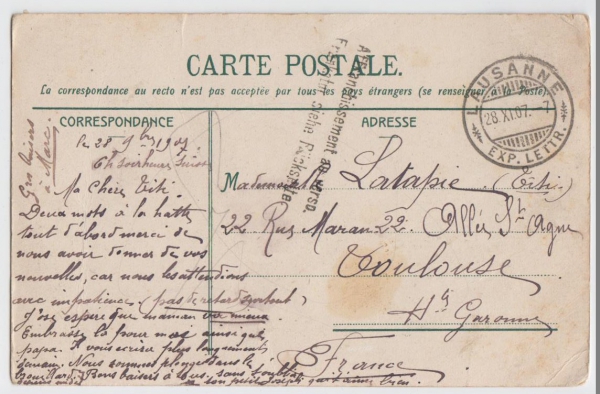 CARTE POSTALE.
La correspondance au recto n'est pas acceptée par tous les pays étrangers (se renseigner à la Poste).
CORRESPONDANCE
ADRESSE
Affranchissement au verso.
Frankatur siehe Rückseite.
LAUSANNE
28.XI.07. - 7
EXP. LETTR.
Gros baisers
à Marc.
le 28 9bre 1907
Ma Chère Titi.
Deux mots à la hâte
tout d'abord merci de
nous avoir donner de vos
nouvelles, car nous les attendions
avec impatience (pas de retard surtout)
J'ose espère que maman va mieux
Embrasse la pour moi ainsi que
papa. Je vous écrirai plus longuement
demain. Nous sommes plongés dans le
brouillard. Bons baisers à tous, sans t'oublier
son petit Joseph qui t'aime bien.
Mademoiselle Latapie (Titi)
22 Rue Maran 22 Allée St Agne
Toulouse
Hte Garonne
France